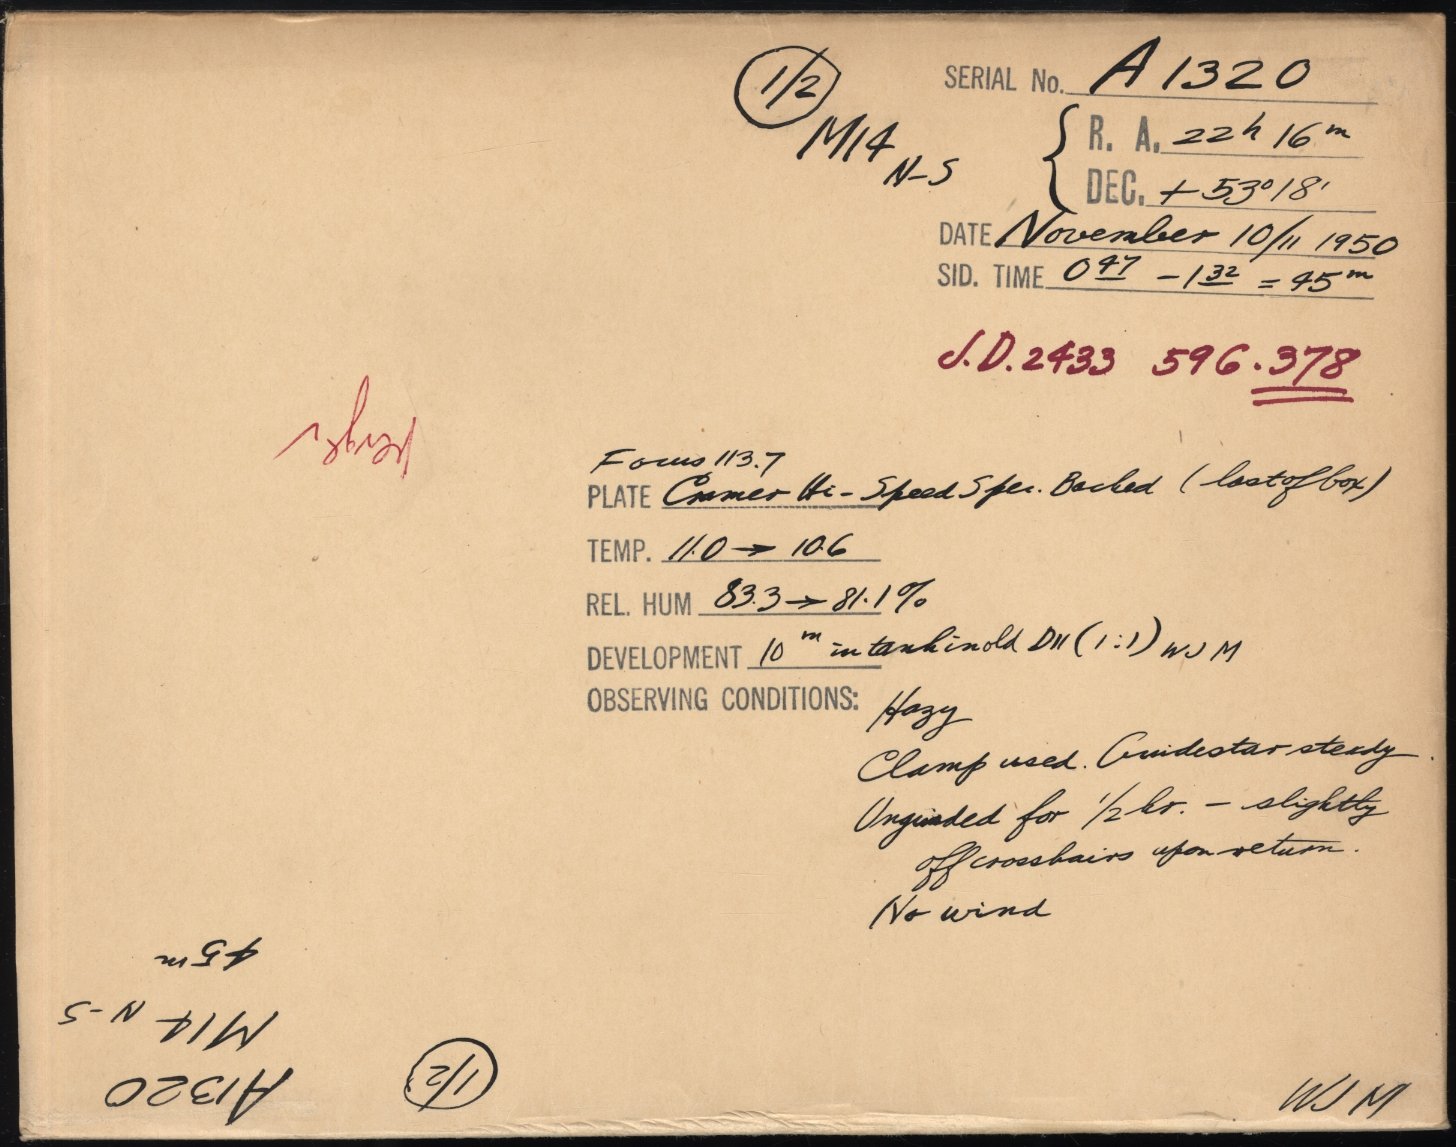 1/2
M14
N-S
SERIAL No. A1320
R. A. 22h 16m
DEC. +53°18'
DATE November 10/11 1950
SID. TIME 0 47 - 1 32 = 45m
J.D. 2433 596.378
Focus 113.7
PLATE Cramer Hi-Speed Spec. Backed (last of box)
TEMP. 11.0 → 10.6
REL. HUM 83.3 → 81.1%
DEVELOPMENT 10m in tank in old D11 (1:1) WJM
OBSERVING CONDITIONS:
Hazy
Clamp used. Guidestar steady.
Unguided for 1/2 hr. - slightly
off crosshairs upon return.
No wind
WJM
A1320
M14 N-S
45m
1/2